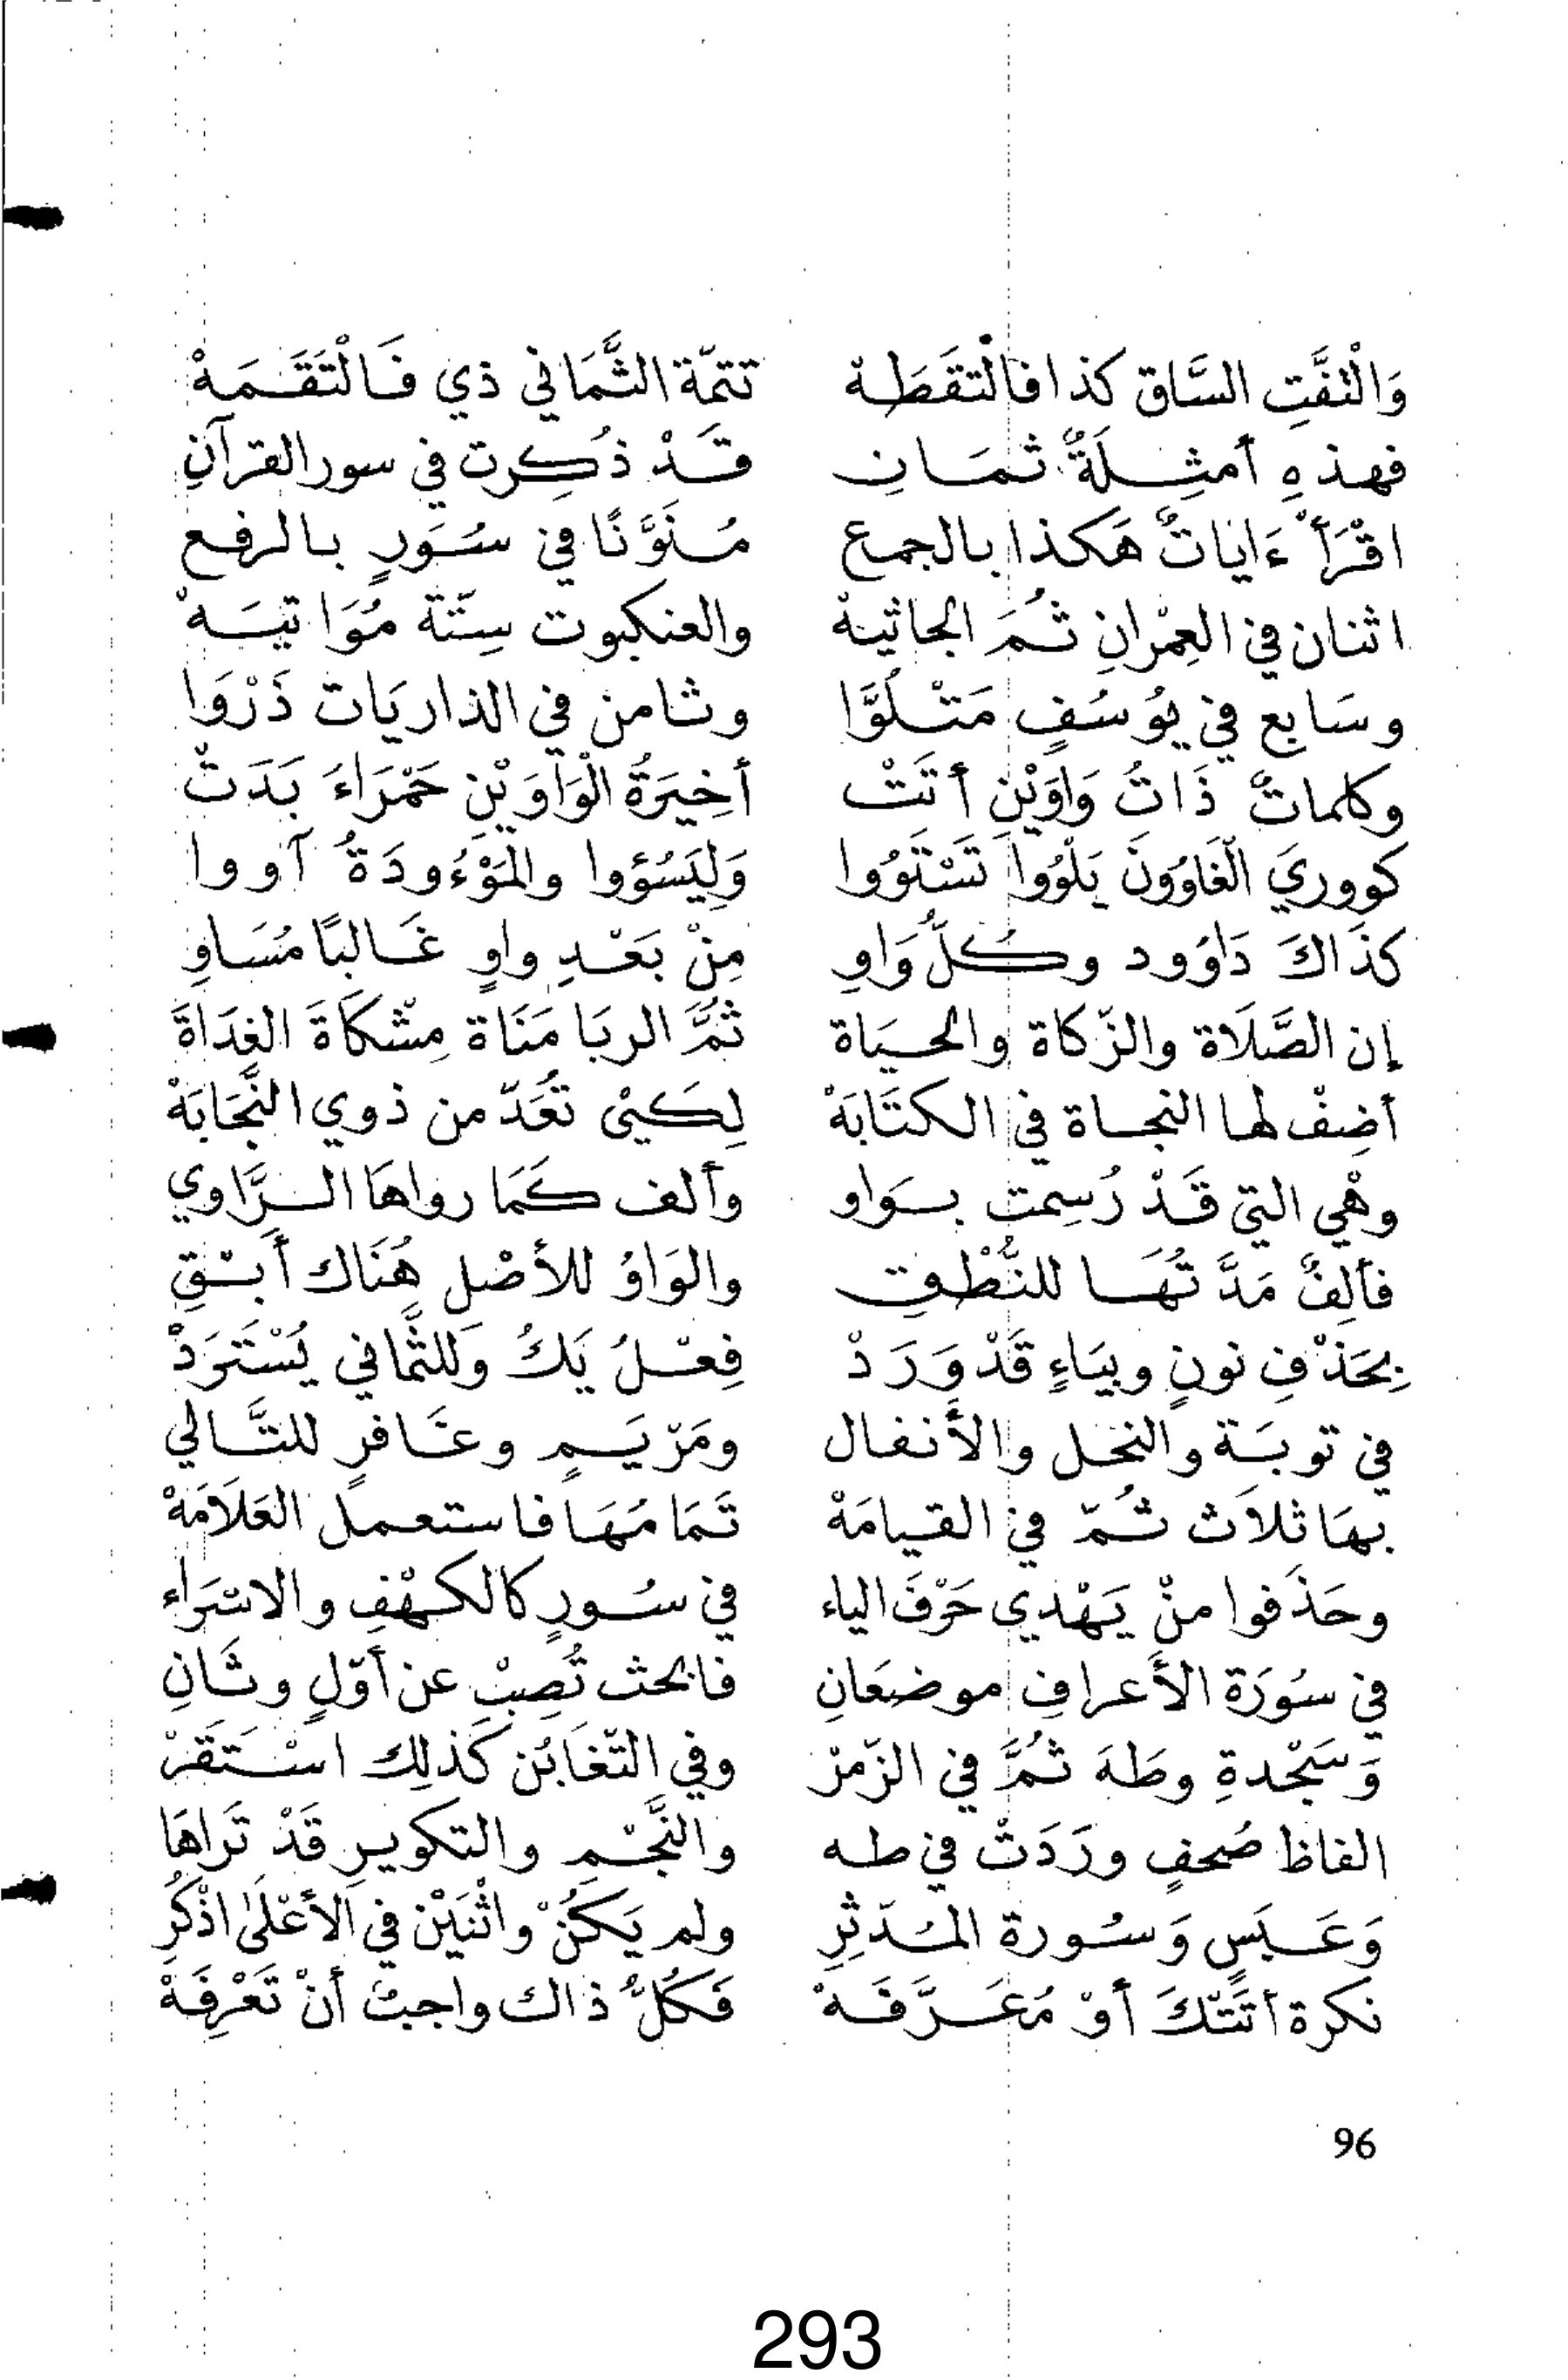 وَالْتَفَّتِ السَّاق كذا فالْتقَطَهْ تتمّة الثَّمَاني ذي فَالْتَقَمَهْ
فهذهِ أمثِلَةٌ ثمَانِ قَدْ ذُكِرت في سور القرآنِ
اقْرَأْ ءَاياتٌ هَكذا بالجمع مُنَوَّنًا في سُوَرٍ بالرفع
اثنان في العِمْرانِ ثُمَ الجاثيهْ والعنكبوت سِتّة مُوَاتيَهْ
وسَابع في يُوسُفٍ مَتْلُوَّا وثامن في الذاريَات ذَرْوَا
وكلماتٌ ذَاتُ وَاوَيْنِ أتَتْ أخِيَرةُ الْوَاوَيْنِ حَمْرَاءَ بَدَتْ
كووريَ الْغَاوُونَ يَلْوُوا تَسْتَوُوا وَلِيَسُؤوا والمَوْءُودَةُ آووا
كذَاكَ دَاوُود وكُلُّ وَاوِ مِنْ بَعْدِ واوٍ غَالبًا مُسَاوِ
إن الصَّلَاة والزّكاة والحيَاة ثُمَّ الربَا مَنَاة مِشْكَاةَ الغِدَاةَ
أضِفْ لها النجاة في الكتَابَهْ لِكَيْ تُعَدّ من ذوي النَّجَابَهْ
وهْي التي قَدْ رُسِمت بوَاو وألف كَمَا رواهَا الرَّاوي
فألِفٌ مَدَّتُهَا للنُّطْقِ والوَاوُ للأصْلِ هُنَاك أبْقِ
بِحَذْفِ نونٍ وبيَاءٍ قَدْ وَرَدْ فِعْلُ يَكُ وَللثَّماني يُسْتَرَدْ
في توبَة والنحل والأنفال ومَرْيَمٍ وغَافرٍ للتَّالي
بهَا ثلاَث ثُمّ في القيامَهْ تَمَامُهَا فاستعمل العَلَامَهْ
وحَذَفوا منْ يَهْدي حَرْفَ الياء في سُورٍ كالكهْفِ والاسْرَاء
في سُورَة الأعرافِ موضعَانِ فابحث تُصِبْ عن أوّلٍ وثَانِ
وَسَجْدةِ وطَهَ ثُمَّ في الزّمرْ وفي التّغَابُن كَذلِك اسْتَقَرْ
الفاظ صُحفٍ ورَدَتْ في طه والنَّجْمِ والتكويرِ قَدْ تَراهَا
وَعَبَسٍ وَسُورة المدّثِرِ ولم يَكُنْ واثْنَيْن في الأعْلَىٰ اذْكُرِ
نكرة أتَتْكَ أوْ مُعَرَّفَهْ فَكُلُّ ذاك واجبٌ أنْ تَعْرِفَهْ
96
293